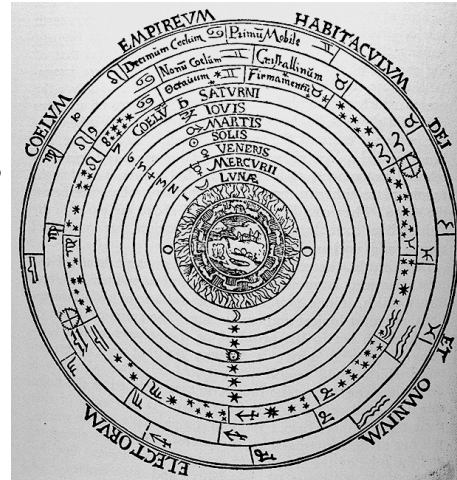 COELVM EMPIREVM HABITACVLVM DEI ET OMNIVM ELECTORVM
Decimum Coelum Primũ Mobile
Nonũ Coelum Cristallinũm
Octauum Firmamentũ
COELV SATVRNI
IOVIS
MARTIS
SOLIS
VENERIS
MERCVRII
LVNÆ